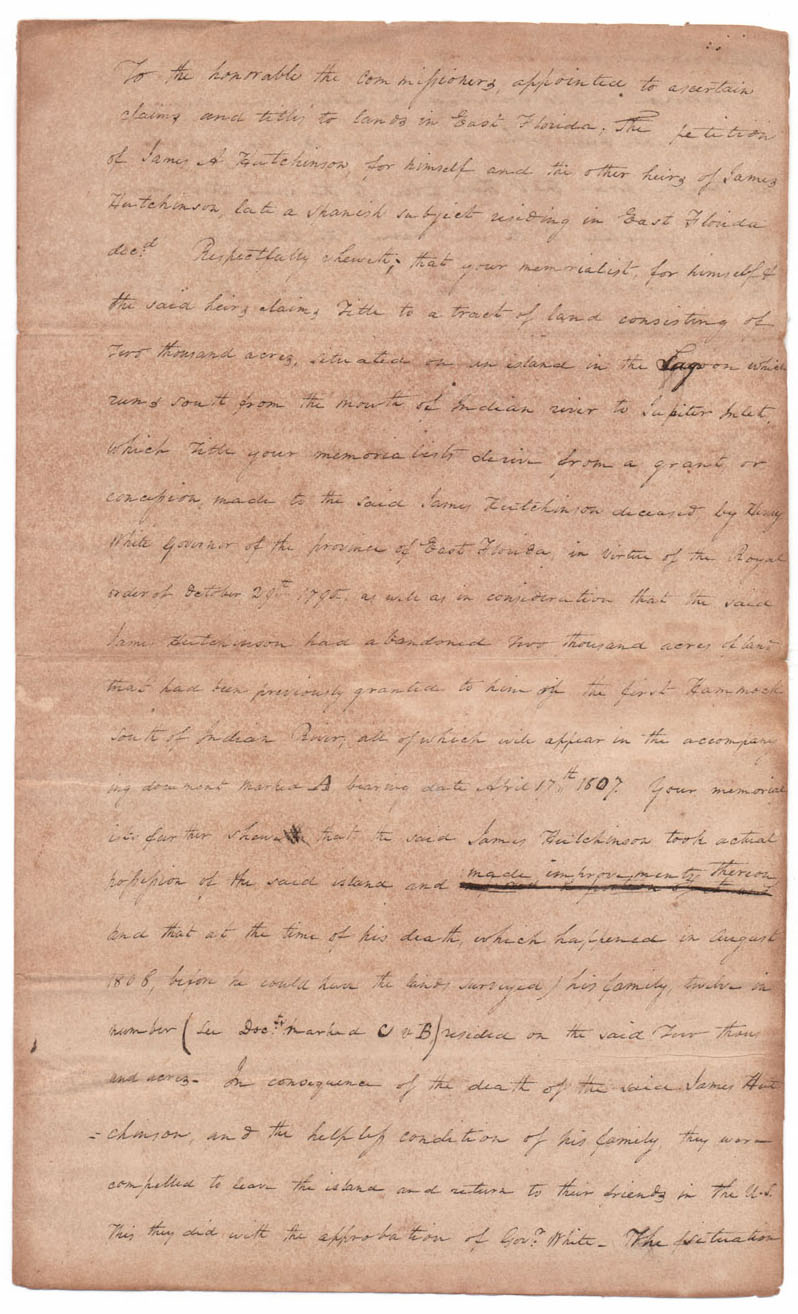 To the honorable the commissioners, appointed to ascertain
claims and titles to lands in East Florida, The petition
of James A Hutchinson, for himself and the other heirs of James
Hutchinson, late a Spanish subject residing in East Florida
decd. Respectfully sheweth, that your memorialist, for himself &
the said heirs claims Title to a tract of land consisting of
Two thousand acres, situated on an island in the Lagoon which
runs south from the mouth of Indian river to Jupiter Inlet,
which Title your memorialists derive from a grant, or
concession, made to the said James Hutchinson deceased by Henry
White Governor of the province of East Florida, in virtue of the Royal
order of October 29th 1790, as well as in consideration that the said
James Hutchinson had abandoned Two thousand acres of land
that had been previously granted to him of the first Hammock
south of Indian River, all of which will appear in the accompany
ing document marked A bearing date April 17th 1807. Your memorial
ists further shew that the said James Hutchinson took actual
possession of the said island and made improvements thereon
and that at the time of his death, which happened in August
1808, before he could have the lands surveyed) his family, twelve in
number (see Docts. marked C & B) resided on the said Two thous
and acres - In consequence of the death of the said James Hut
=chinson, and the helpless condition of his family, they were
compelled to leave the island and return to their friends in the U.S.
This they did with the approbation of Govr. White - The situation